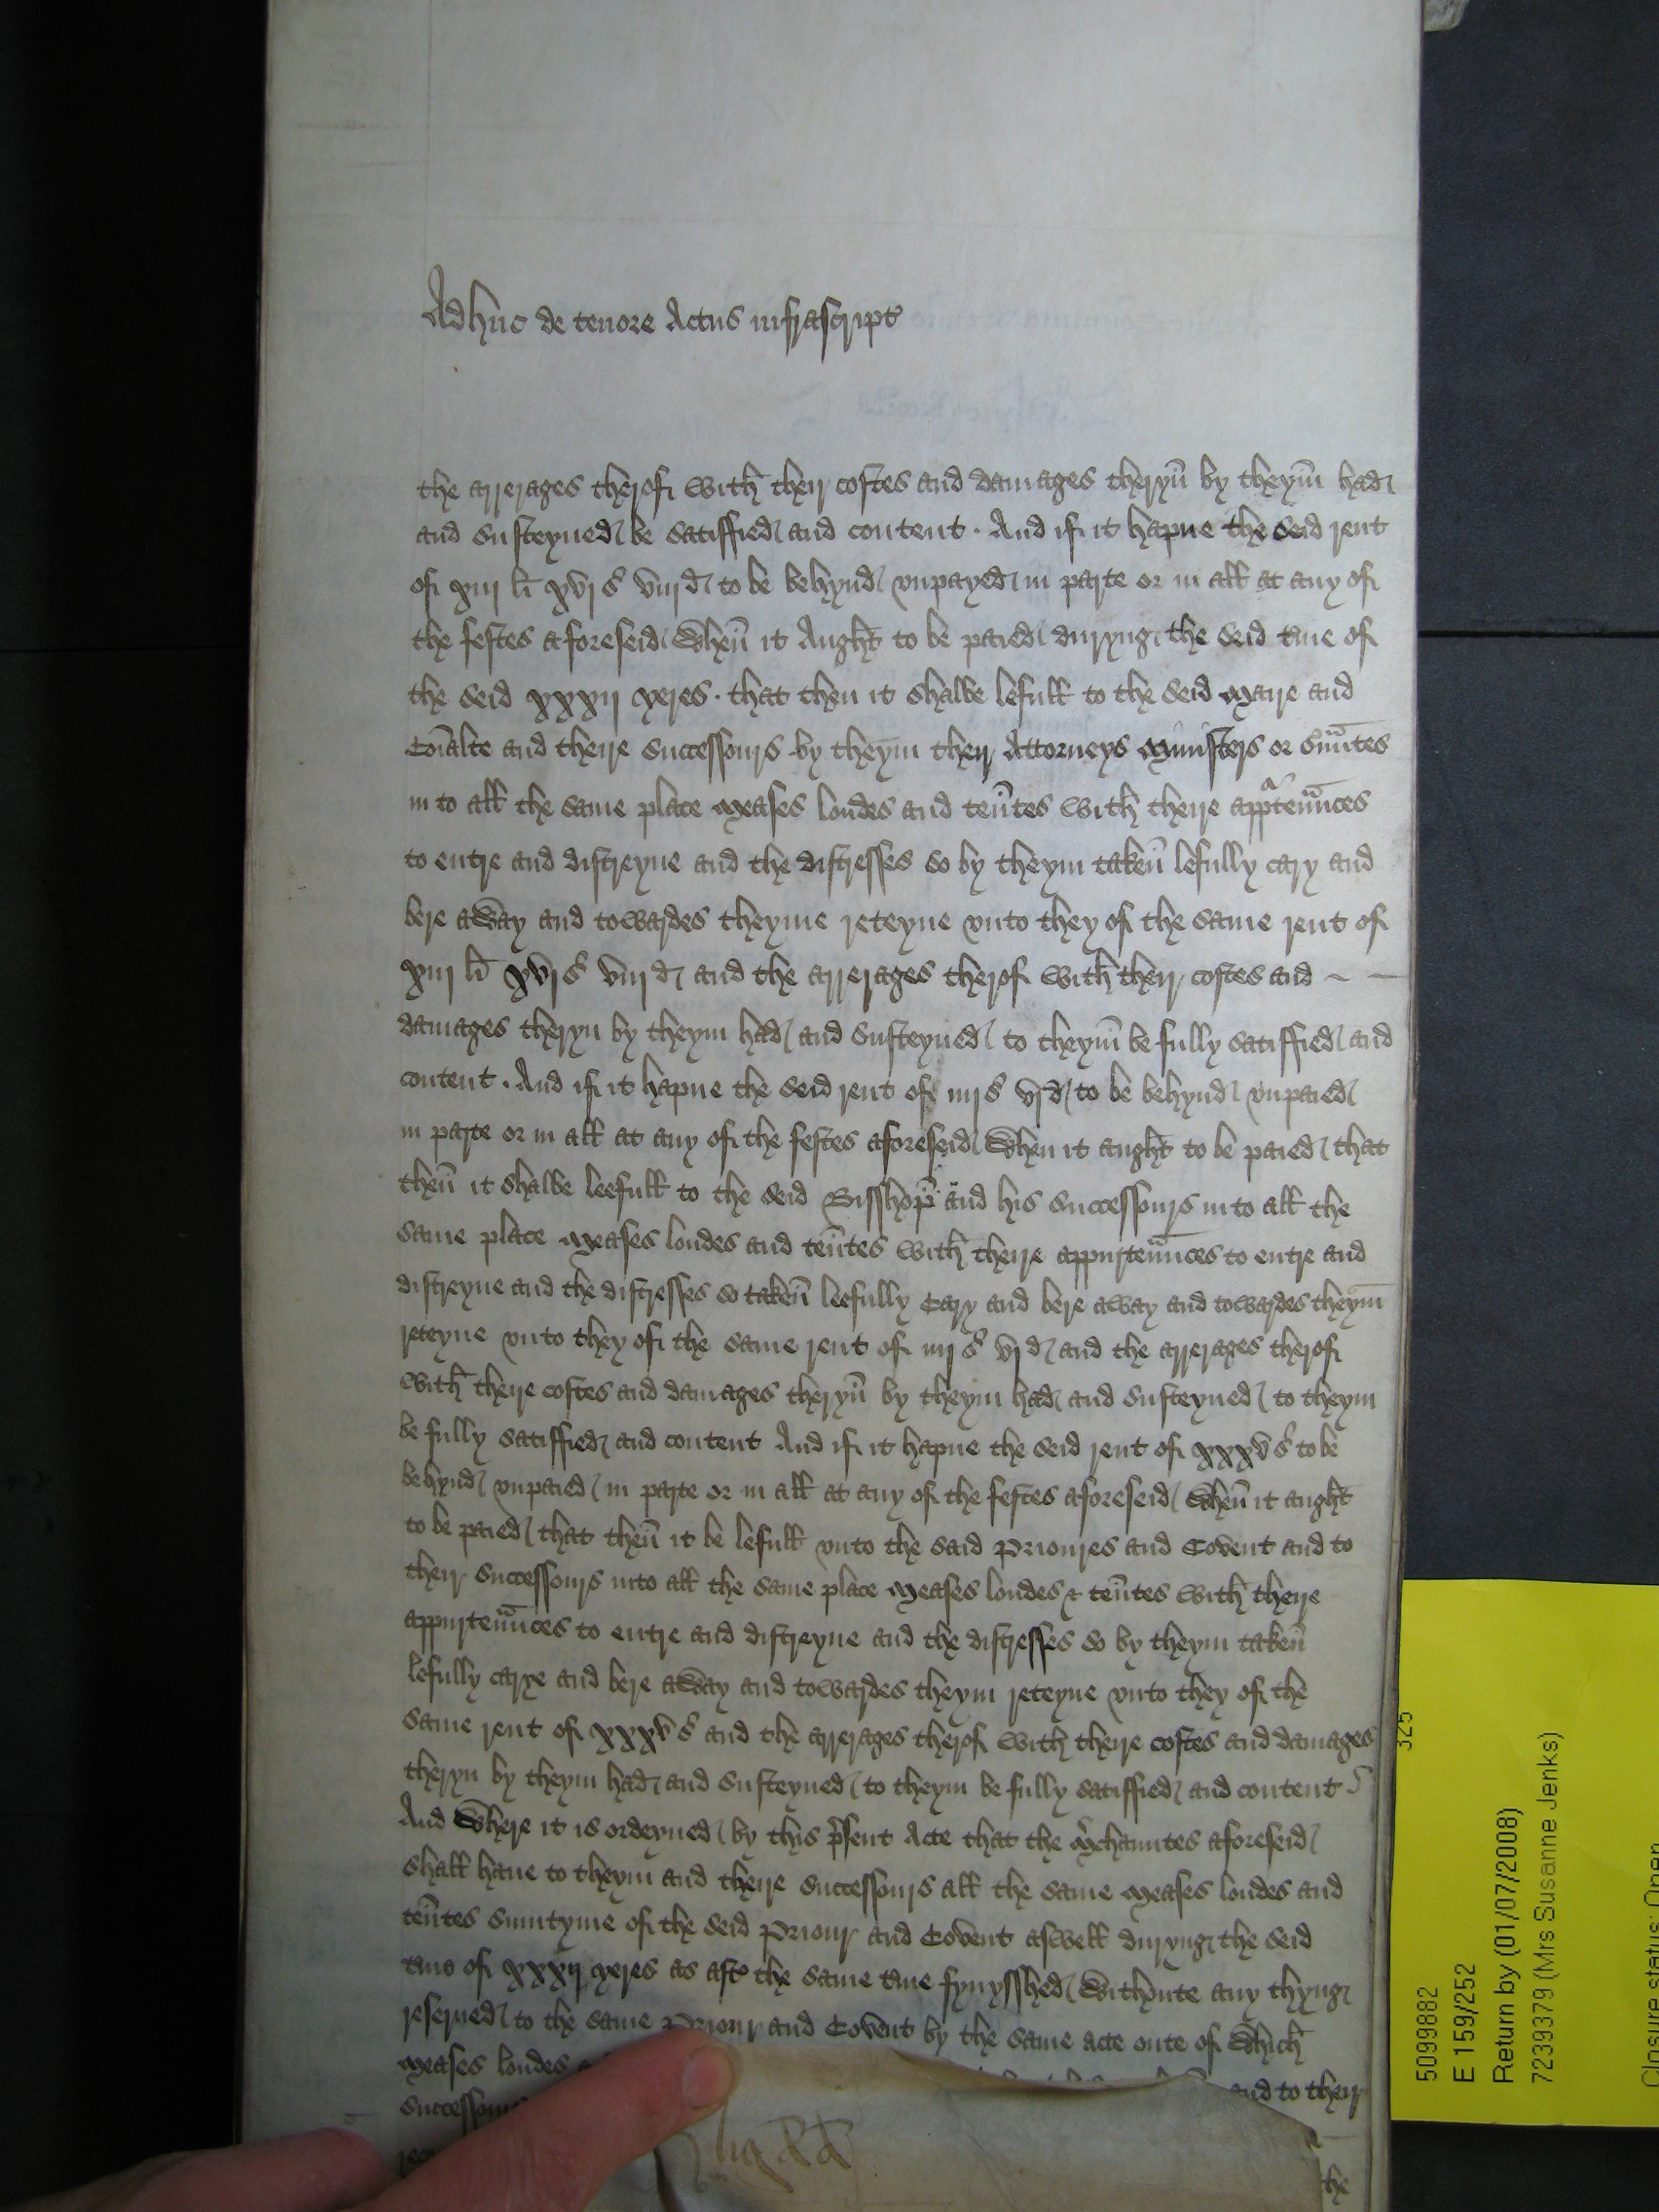 Adhuc de tenore Actus infrascript
the arrerages therof with their costes and damages theryn by theym had
and susteyned be satisfied and content. And if it hapne the seid rent
of xiij li xvj s viij d to be behynd unpayed in parte or in all at any of
the festes aforeseid when it Aught to be paied duryng the seid tme of
the seid xxxij yeres. that then it shalbe lefull to the seid Maire and
Coialte and theire successours by theym their Attorneys Ministers or svuntes
in to all the same place Meases londes and tentes with theire apprtennces
to entre and distreyne and the distresses so by theym taken lefully cary and
bere away and towardes theyme reteyne unto they of the same rent of
xiij li xvj s viij d and the arrerages therof with their costes and
damages theryn by theym had and susteyned to theym be fully satisfied and
content. And if it hapne the seid rent of iiij s vj d to be behynd unpaied
in parte or in all at any of the festes aforeseid when it aught to be paied that
then it shalbe leefull to the seid Bisshop and his successours in to all the
same place Meases londes and tentes with theire appurtennces to entre and
distreyne and the distresses so taken leefully Cary and bere away and towardes theym
reteyne unto they of the same rent of iiij s vj d and the arrerages therof
with theire costes and damages theryn by theym had and susteyned to theym
be fully satisfied and content And if it hapne the seid rent of xxxv s to be
behynd unpaied in parte or in all at any of the festes aforeseid when it aught
to be paied that then it be lefull unto the said Priores and Covent and to
their successours into all the same place Meases londes & tentes with theire
appurtennces to entre and distreyne and the distresses so by theym taken
lefully carye and bere away and towardes theym reteyne unto they of the
same rent of xxxv s and the arrerages therof with theire costes and damages
theryn by theym had and susteyned to theym be fully satisfied and content
And Where it is ordeyned by this psent Acte that the Mchauntes aforeseid
shall haue to theym and theire successours all the same Meases londes and
tentes sumtyme of the seid Priour and Covent aswell duryng the seid
tme of xxxij yeres as aft the same tme fynysshed withoute any thyng
reserued to the same Priour and Covent by the same acte oute of which
Meases londes and to their
successours
the
325
5099882
E 159/252
Return by (01/07/2008)
7239379 (Mrs Susanne Jenks)
Closure status: Open